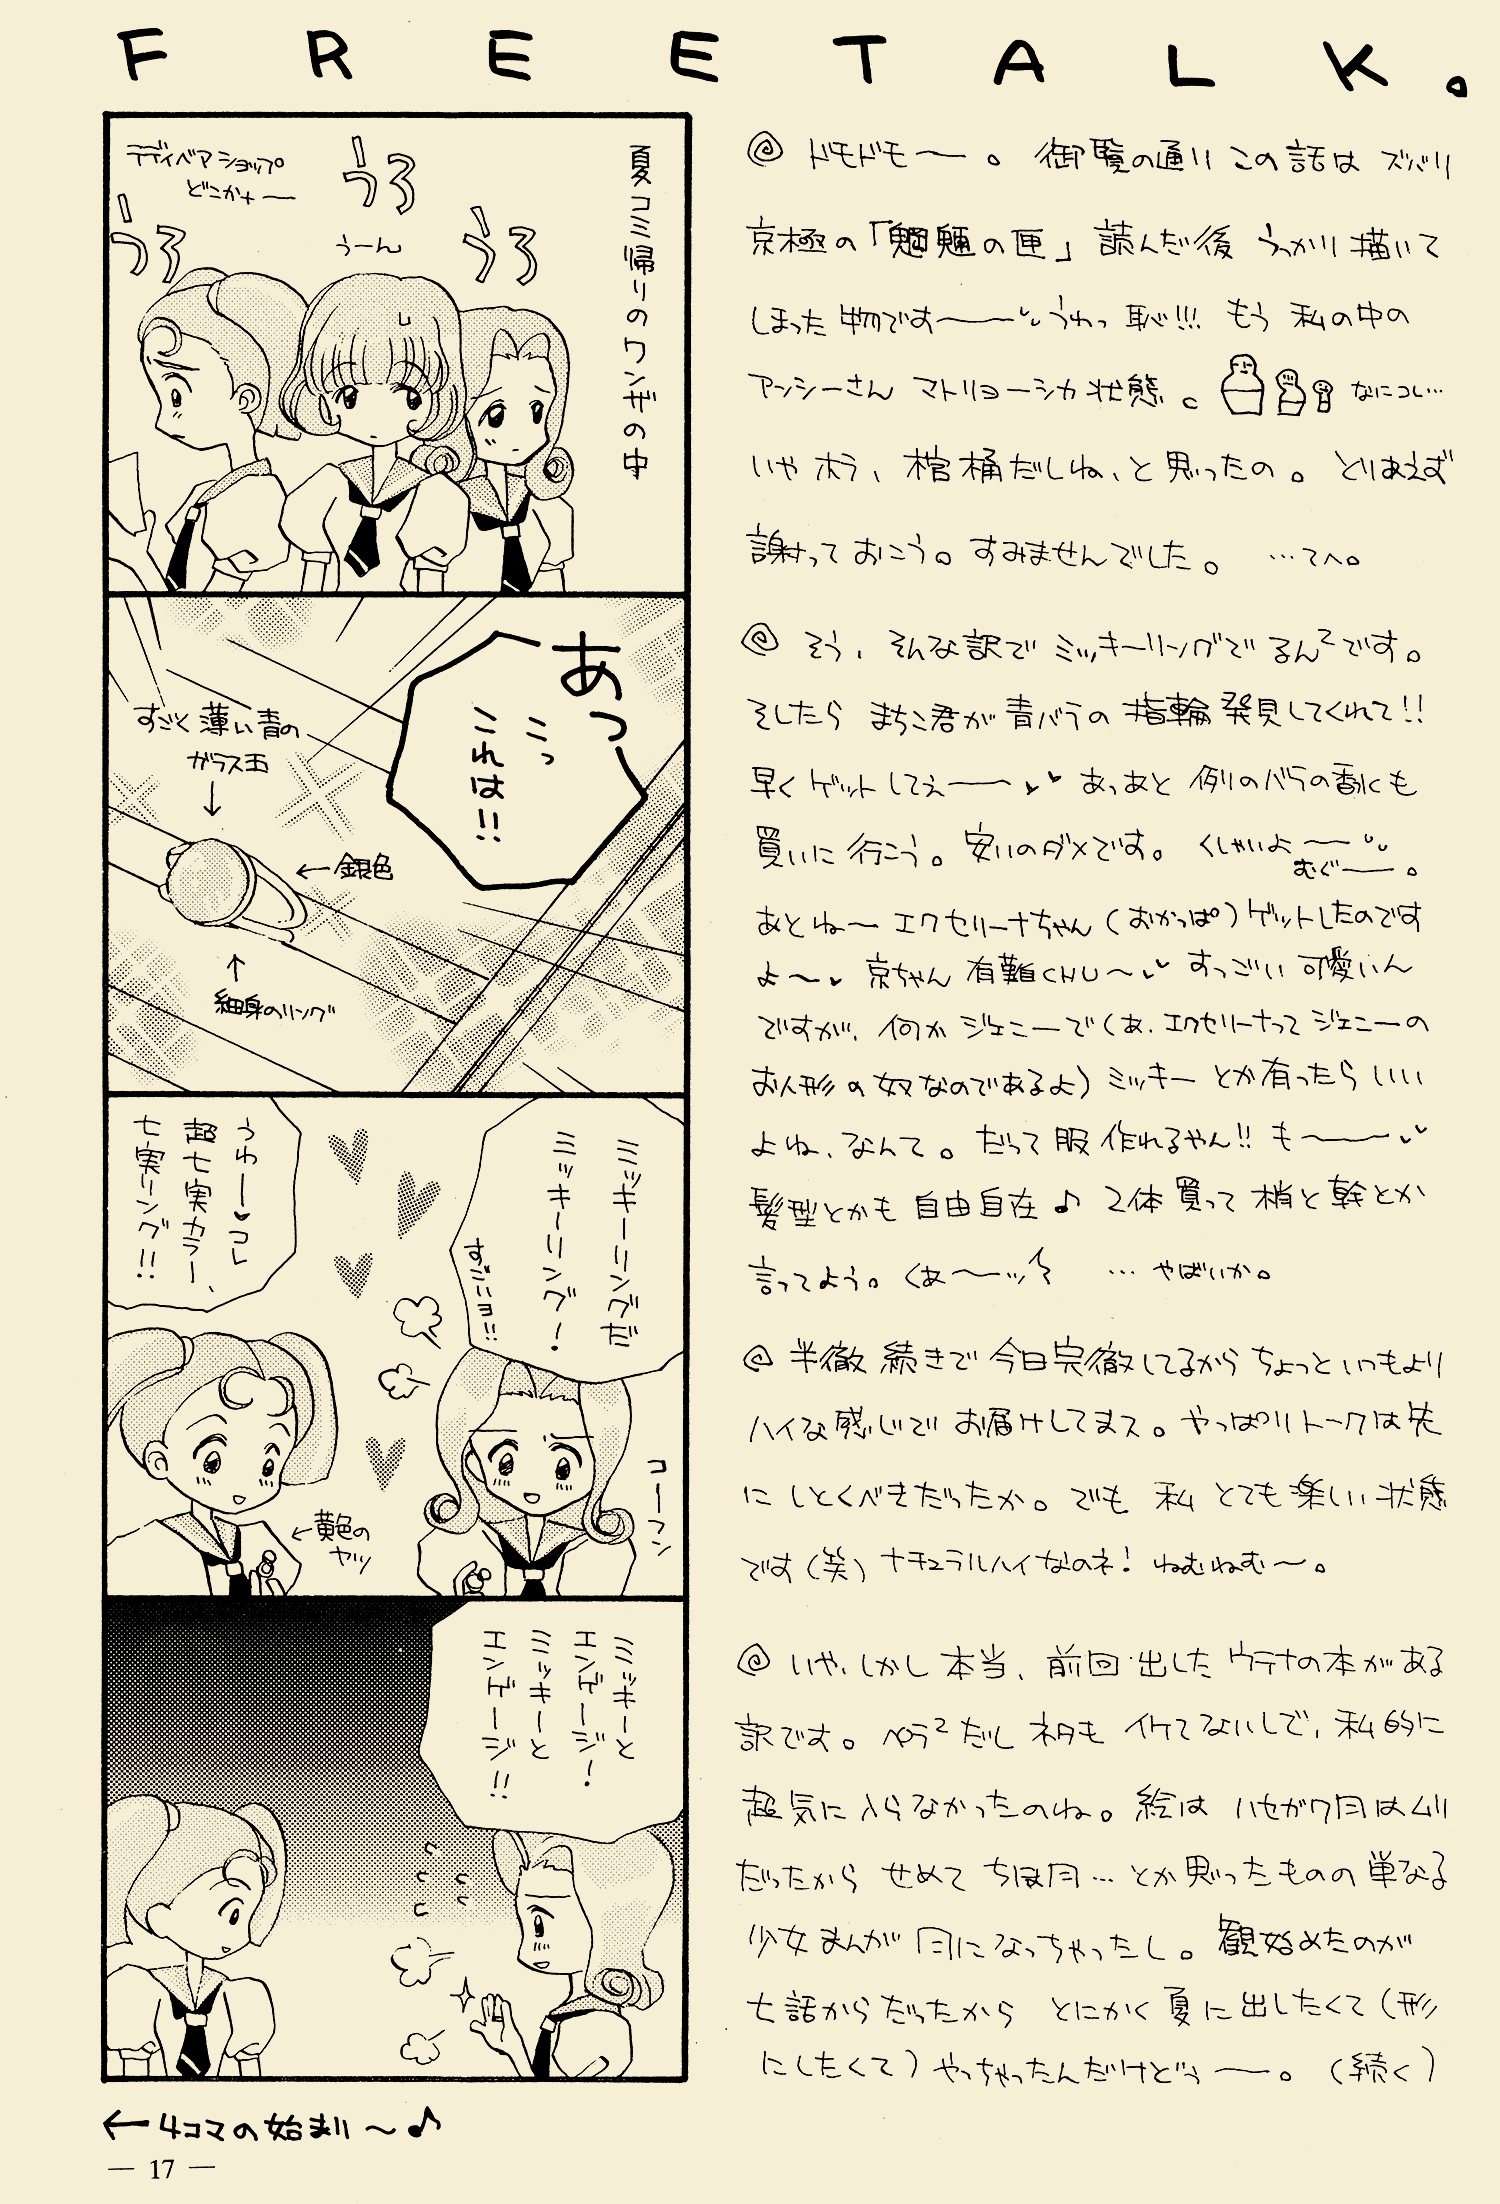 FREE TALK.
夏コミ帰りのワンザの中
うろ
うろ
うろ
うーん
テディベアショップ
どこかナー
あっ
こっ
これは!!
すごく薄い青の
ガラス玉
←銀色
細身のリング
ミッキーリングだ
ミッキーリング!
すごいヨ!!
うわー♥コレ
超七実カラー、
七実リング!!
コーフン
←黄色の
ヤツ
ミッキーと
エンゲージ!
ミッキーと
エンゲージ!!
←4コマの始まり〜♪
— 17 —
ドモドモ〜。御覧の通りこの話はズバリ
京極の「魍魎の匣」読んだ後うっかり描いて
しまった物です〜うわっ恥!!!もう私の中の
アンシーさんマトリョーシカ状態。なにコレ…
いやホラ、棺桶だしね、と思ったの。とりあえず
謝っておこう。すみませんでした。…てへ。
そう、そんな訳でミッキーリングでるん²です。
そしたらまちこ君が青バラの指輪発見してくれて!!
早くゲットしてえ〜♥あっあと例のバラの香水も
買いに行こう。安いのダメです。くしゃいよ〜
むぐ〜。
あとね〜エクセリーナちゃん(おかっぱ)ゲットしたのです
よ〜♥京ちゃん有難CHU〜♥すっごい可愛いん
ですが、何かジェニーで(あ、エクセリーナってジェニーの
お人形の奴なのであるよ)ミッキーとか有ったらいい
よね、なんて。だって服作れるやん!!も〜♥
髪型とかも自由自在♪2体買って梢と幹とか
言ってよう。くあ〜ッ …やばいか。
半徹続きで今日完徹してるからちょっといつもより
ハイな感じでお届けしてまス。やっぱりトークは先
にしとくべきだったか。でも私とても楽しい状態
です(笑)ナチュラルハイなのネ!ねむねむ〜。
いや、しかし本当、前回出したウテナの本がある
訳です。ペラ²だしネタもイケてないしで、私的に
超気に入らなかったのね。絵はハセガワ目はムリ
だったからせめてちほ目…とか思ったものの単なる
少女まんが目になっちゃったし。観始めたのが
七話からだったからとにかく夏に出したくて(形
にしたくて)やっちゃったんだけどぅー。(続く)